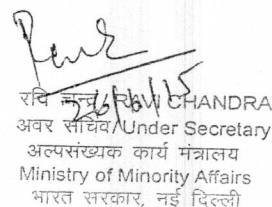 26/6/15
रवि चन्द्रा/RAVI CHANDRA
अवर सचिव/Under Secretary
अल्पसंख्यक कार्य मंत्रालय
Ministry of Minority Affairs
भारत सरकार, नई दिल्ली